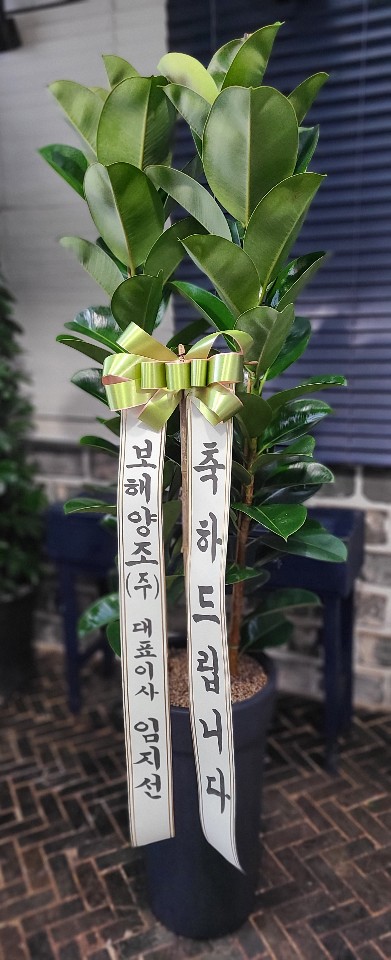 보해양조(주) 대표이사 임지선
축하드립니다